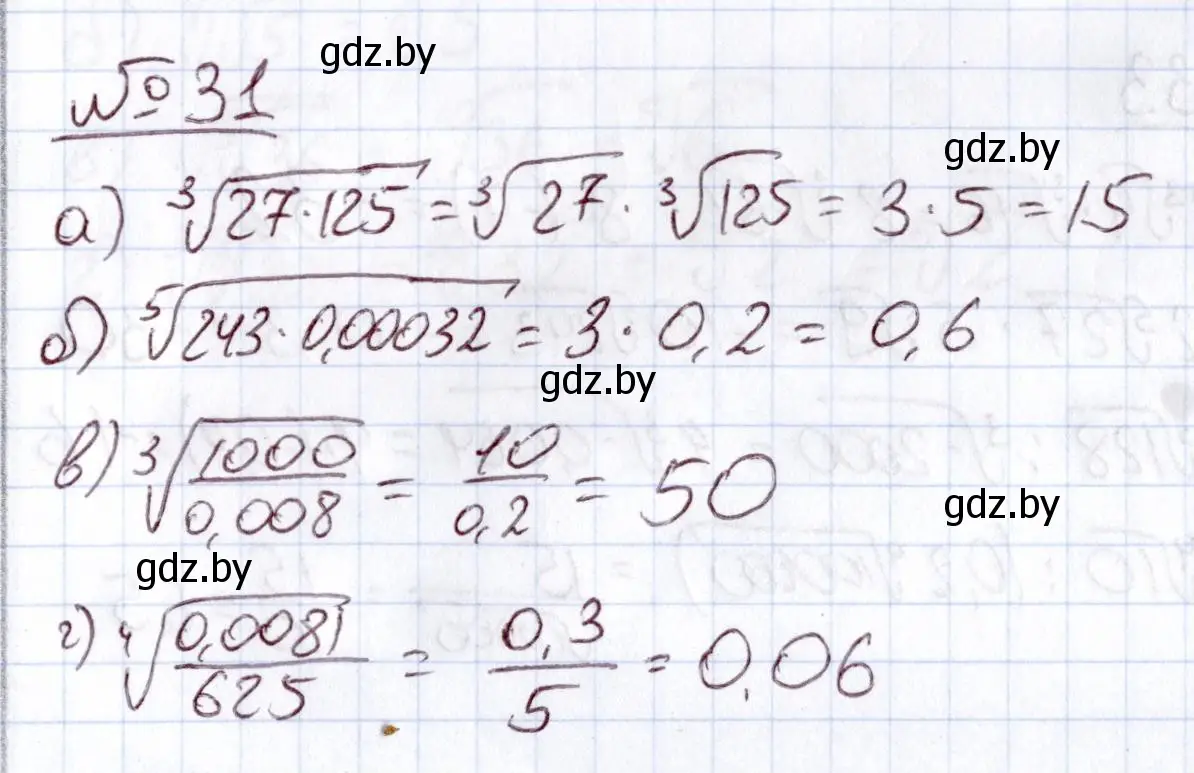 gdz.by
№ 31
gdz.by
а) ∛(27·125) = ∛27 · ∛125 = 3·5 = 15
б) ⁵√(243·0,00032) = 3·0,2 = 0,6
gdz.by
в) ∛(1000/0,008) = 10/0,2 = 50
gdz.by
gdz.by
г) ⁴√(0,0081/625) = 0,3/5 = 0,06